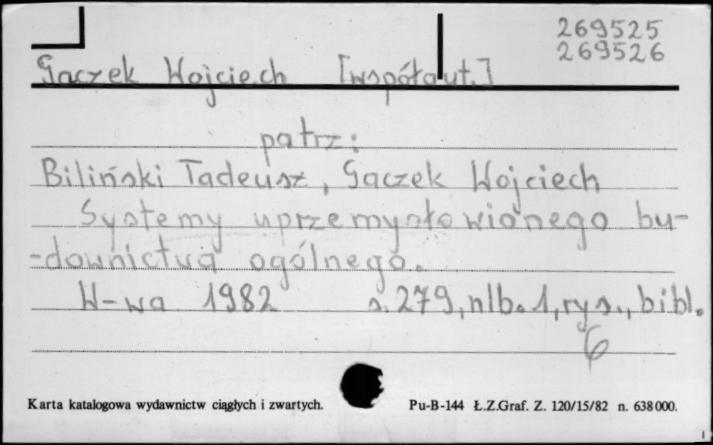 269525
269526
Gaczek Wojciech [współaut.]
patrz:
Biliński Tadeusz, Gaczek Wojciech
Systemy uprzemysłowionego bu-
-downictwa ogólnego.
W-wa 1982 s. 279, nlb. 1, rys., bibl.
6
Karta katalogowa wydawnictw ciągłych i zwartych. Pu-B-144 Ł.Z.Graf. Z. 120/15/82 n. 638000.